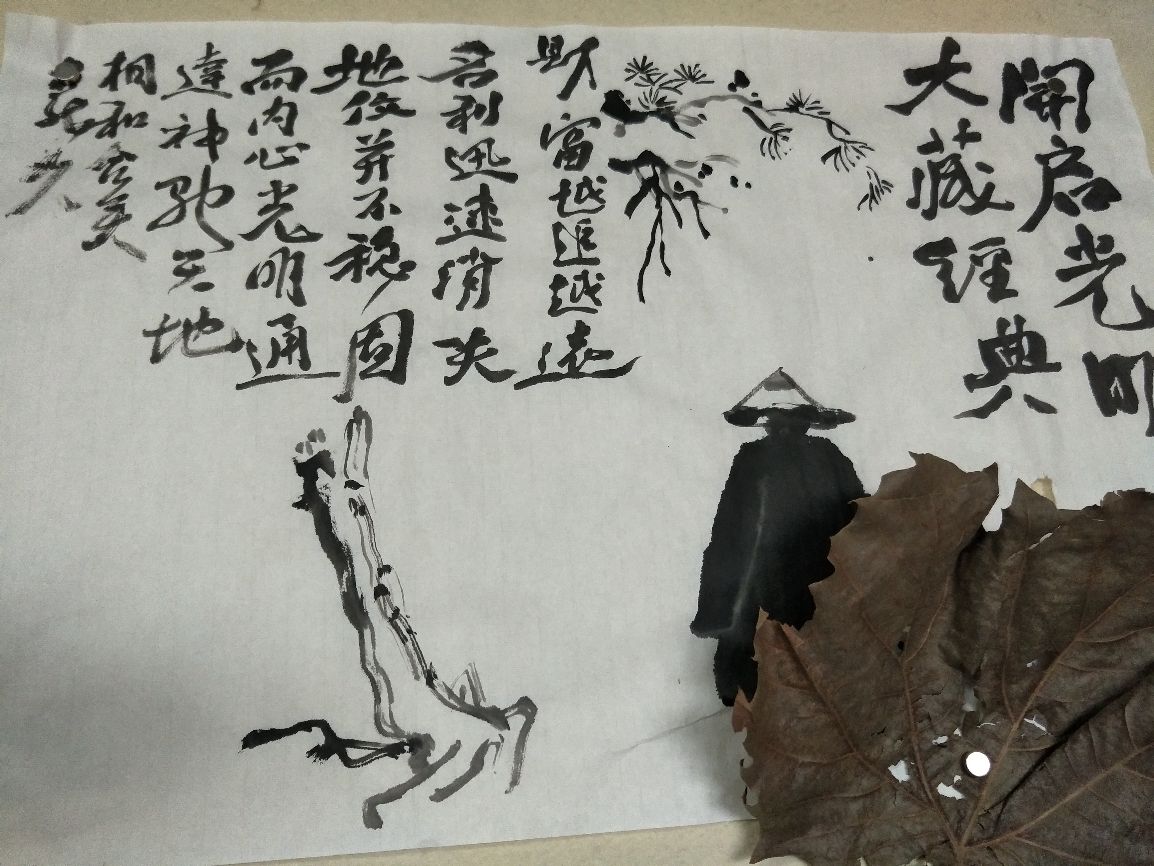 開启光明
大藏经典
财富越追越遠
名利迅速消失
地位并不稳固
而内心光明通
達神驰天地
相和合美